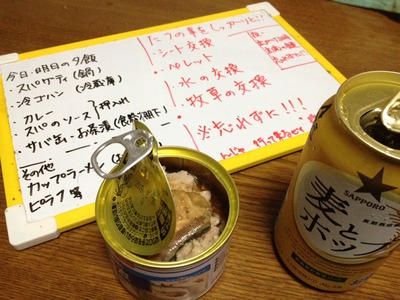 今日・明日の夕飯
・スパゲティ(鍋)
・冷ゴハン(冷蔵庫)
・カレー
・スパのソース 押入れ
・サバ缶・お茶漬
その他
カップラーメン
ピラフ 等
たつの事をしっかりと!!
・シート交換
・ペレット
・水の交換
・牧草の交換
※忘れずに!!!
SAPPORO
麦と
ホップ